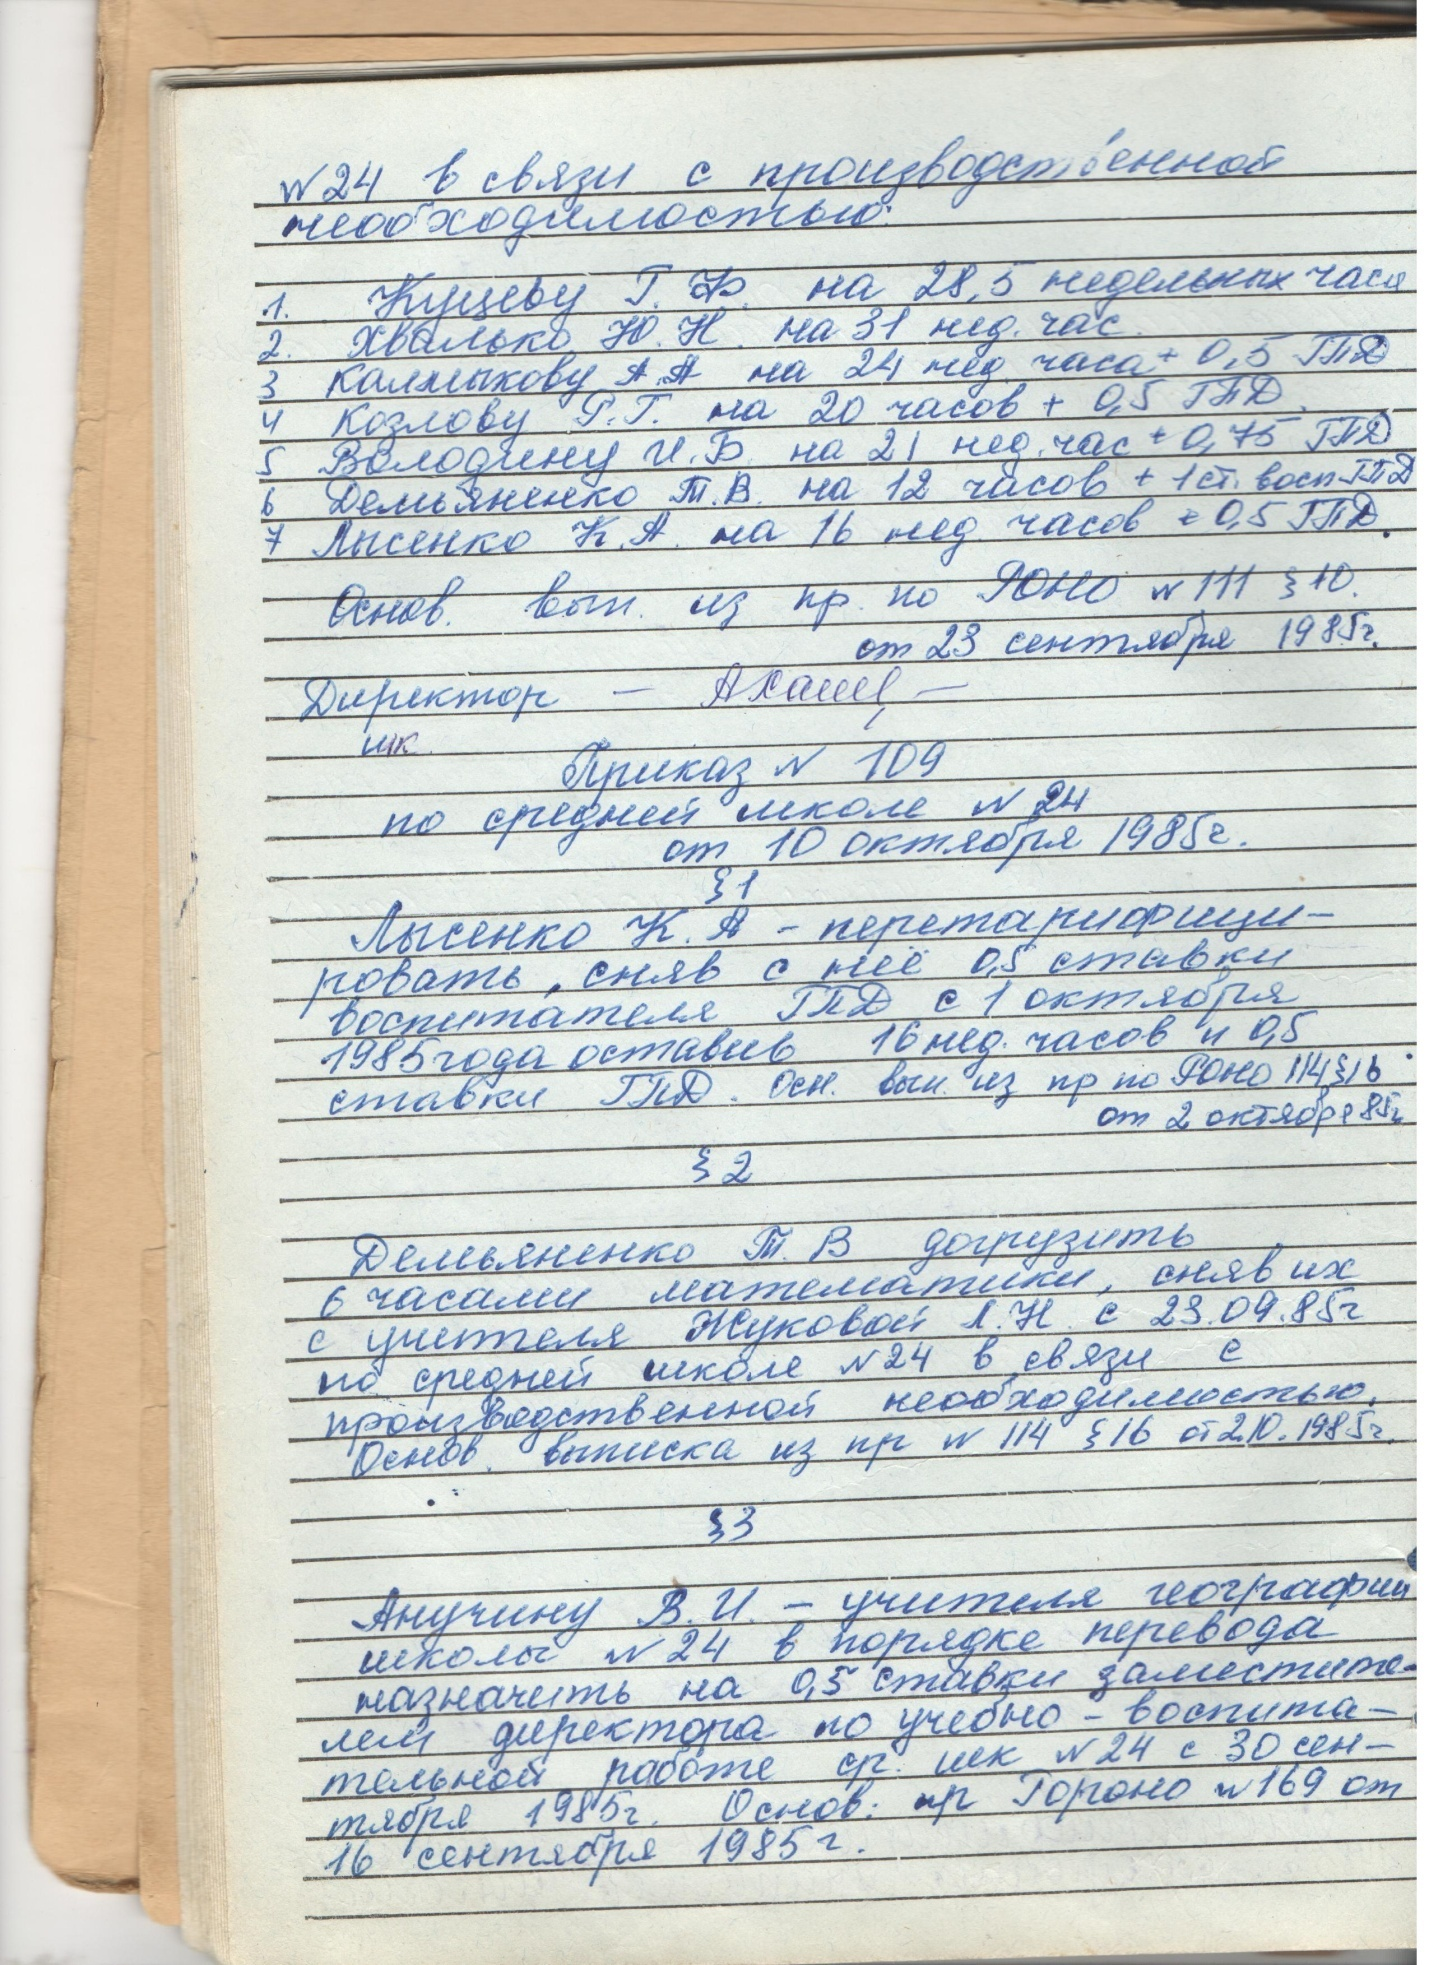 № 24 в связи с производственной
необходимостью:
1. Куцеву Г. Ф. на 28,5 недельных часа
2. Хвалько Ю. Н. на 31 нед. час.
3 Калмыкову А.А на 24 нед. часа + 0,5 ГПД
4 Козлову Р.Г. на 20 часов + 0,5 ГПД.
5 Володину И.Б. на 21 нед. час + 0,75 ГПД
6 Демьяненко Т.В. на 12 часов + 1 ст. восп ГПД
7 Лысенко К.А. на 16 нед. часов + 0,5 ГПД.
Основ. вып. из пр. по РОНО № 111 § 10.
от 23 сентября 1985г.
Директор — —
шк.
Приказ № 109
по средней школе № 24
от 10 октября 1985г.
§ 1
Лысенко К. А – перетарифици-
ровать, сняв с неё 0,5 ставки
воспитателя ГПД с 1 октября
1985 года оставив 16 нед. часов и 0,5
ставки ГПД. Осн. вып. из пр по РОНО 114 § 16
от 2 октября 85г
§ 2
Демьяненко Т. В догрузить
6 часами математики, сняв их
с учителя Жуковой Л.Н. с 23.09.85г
по средней школе № 24 в связи с
производственной необходимостью.
Основ. выписка из пр № 114 § 16 от 2.10.1985г.
§ 3
Анучину В.И. – учителя географии
школы № 24 в порядке перевода
назначить на 0,5 ставки заместите-
лем директора по учебно – воспита-
тельной работе ср. шк № 24 с 30 сен-
тября 1985г. Основ: пр Гороно № 169 от
16 сентября 1985 г.